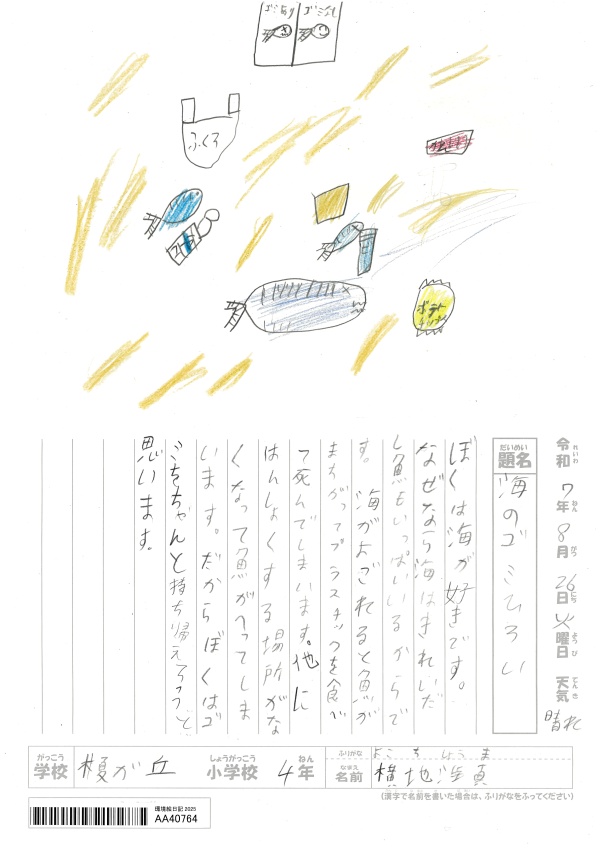 ゴミあり
ゴミなし
ふくろ
ポテト
チップ
令和7年8月26日火曜日 天気 晴れ
れいわ ねん がつ にち ようび てんき
だいめい
題名
海のゴミひろい
ぼくは海が好きです。
なぜなら海はきれいだ
し魚もいっぱいいるからで
す。海がよごれると魚が
まちがってプラスチックを食べ
て死んでしまいます。他に
はんしょくする場所がな
くなって魚がへってしま
います。だからぼくはゴ
ミをちゃんと持ち帰ろうと
思います。
がっこう
学校
榎が丘
しょうがっこう
小学校
ねん
4年
ふりがな
よこちしょうま
なまえ
名前
横地
真
(漢字で名前を書いた場合は、ふりがなをふってください)
環境絵日記 2025
AA40764